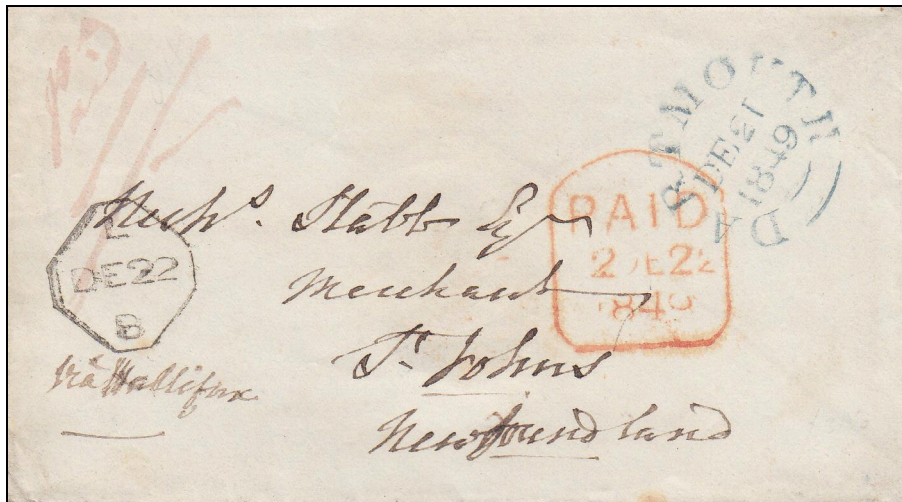 DARTMOUTH
DE 21
1849
PAID
DE 22
184
L
DE 22
B
Stabb Esqr
Merchant
St. Johns
Newfoundland
via Hallifax